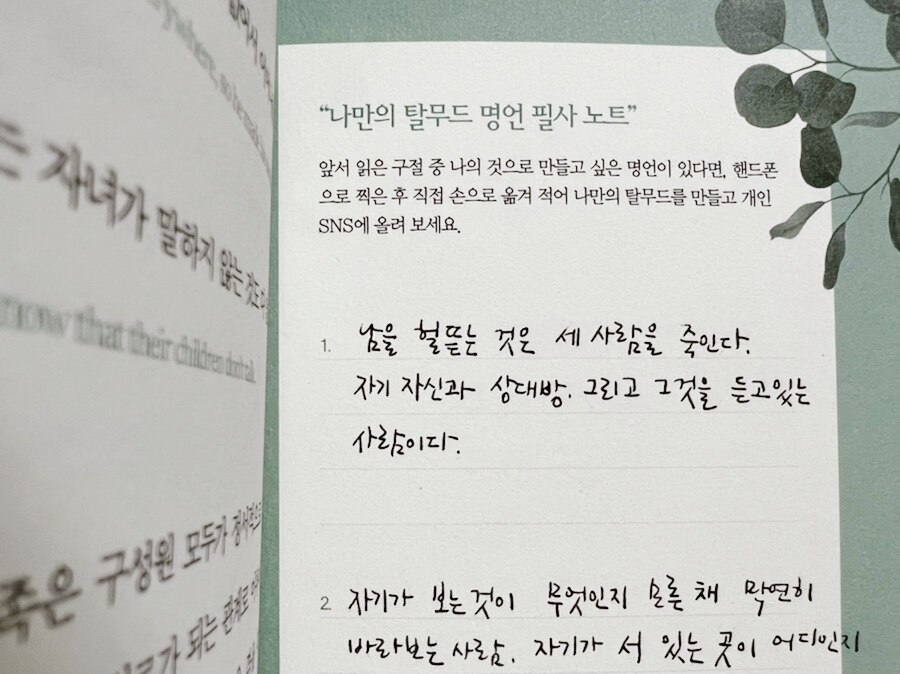 자녀가 말하지 않는 것도
know that their children don't talk
족은 구성원 모두가 정서적으로
되는 관계로
“나만의 탈무드 명언 필사 노트”
앞서 읽은 구절 중 나의 것으로 만들고 싶은 명언이 있다면, 핸드폰
으로 찍은 후 직접 손으로 옮겨 적어 나만의 탈무드를 만들고 개인
SNS에 올려 보세요.
1. 남을 헐뜯는 것은 세 사람을 죽인다.
자기 자신과 상대방. 그리고 그것을 듣고있는
사람이다.
2 자기가 보는것이 무엇인지 모른 채 막연히
바라보는 사람. 자기가 서 있는 곳이 어디인지